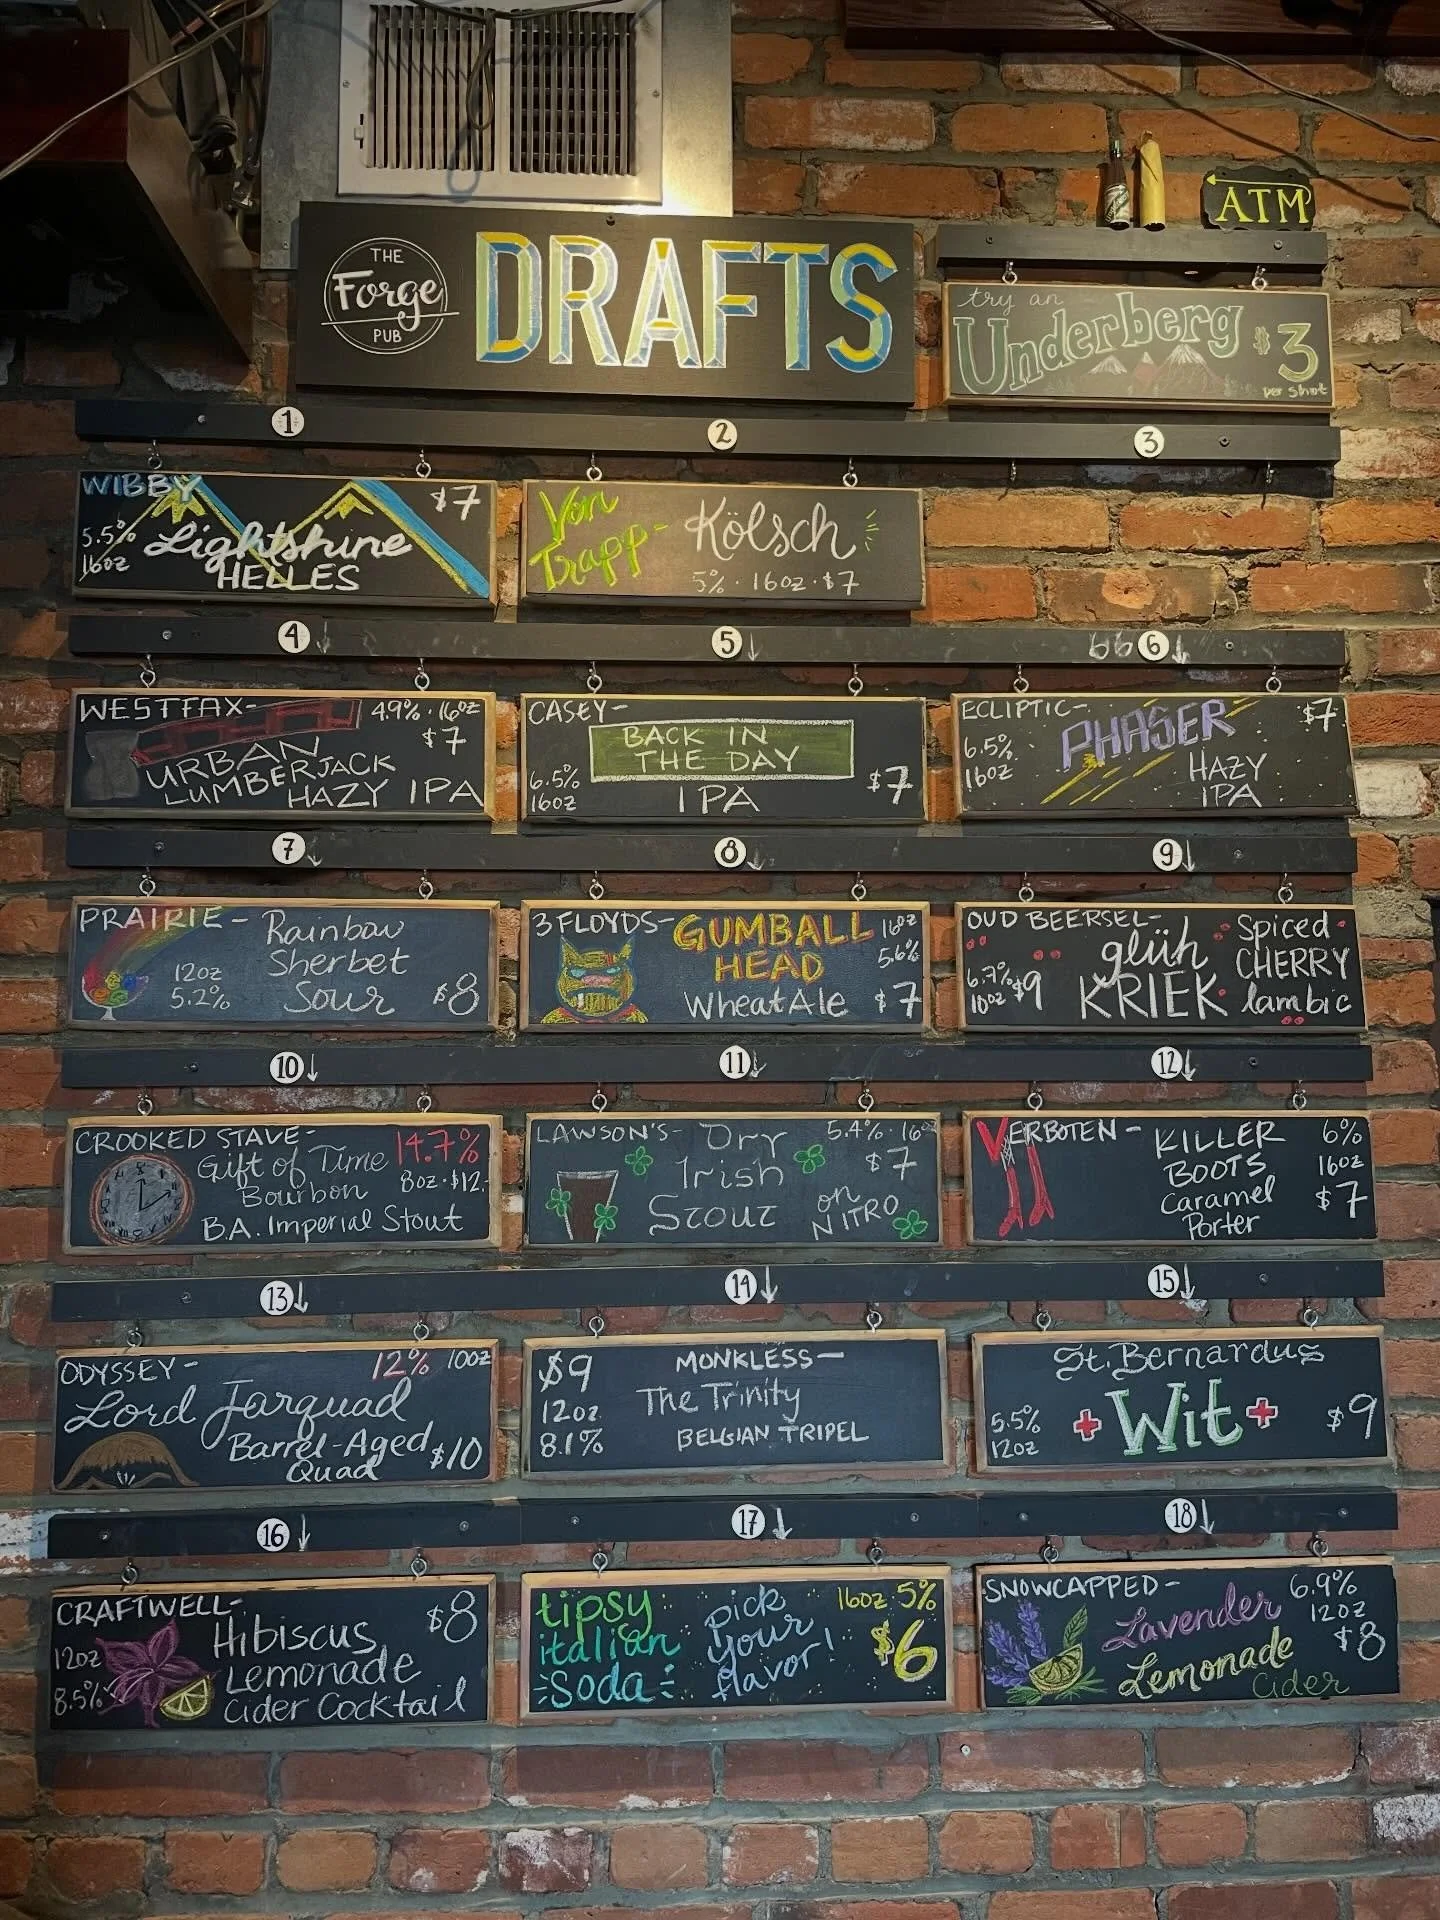 ATM
THE
Forge
PUB
DRAFTS
try an
Underberg
$3
per shot
1
2
3
WIBBY
$7
5.5%
16oz
Lightshine
HELLES
Von
Trapp-
Kölsch
5% · 16oz · $7
4
5
6
WESTFAX-
4.9% · 16oz
$7
URBAN
LUMBERJACK
HAZY IPA
CASEY-
BACK IN
THE DAY
6.5%
16oz
IPA
$7
ECLIPTIC-
PHASER
$7
6.5%
16oz
HAZY
IPA
7
8
9
PRAIRIE-
Rainbow
Sherbet
Sour
12oz
5.2%
$8
3 FLOYDS-
GUMBALL
HEAD
Wheat Ale
16oz
5.6%
$7
OUD BEERSEL-
glüh
KRIEK
6.7%
10oz
$9
Spiced
CHERRY
lambic
10
11
12
CROOKED STAVE-
Gift of Time
Bourbon
B.A. Imperial Stout
14.7%
8oz · $12.
LAWSON'S-
Dry
Irish
Stout
5.4% · 16oz
$7
on
NITRO
VERBOTEN-
KILLER
BOOTS
Caramel
Porter
6%
16oz
$7
13
14
15
ODYSSEY-
12% 10oz
Lord Farquad
Barrel-Aged
Quad
$10
$9
12oz
8.1%
MONKLESS-
The Trinity
BELGIAN TRIPEL
St. Bernardus
Wit
5.5%
12oz
$9
16
17
18
CRAFTWELL-
Hibiscus
Lemonade
Cider Cocktail
12oz
8.5%
$8
tipsy
italian
Soda
pick
your
flavor!
16oz 5%
$6
SNOWCAPPED-
Lavender
Lemonade
Cider
6.9%
12oz
$8